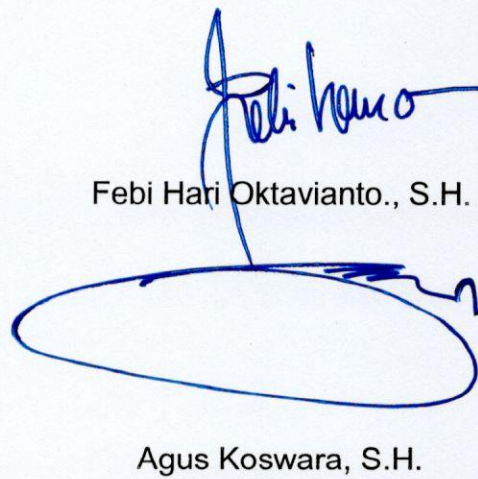 Febi Hari Oktavianto., S.H.
Agus Koswara, S.H.